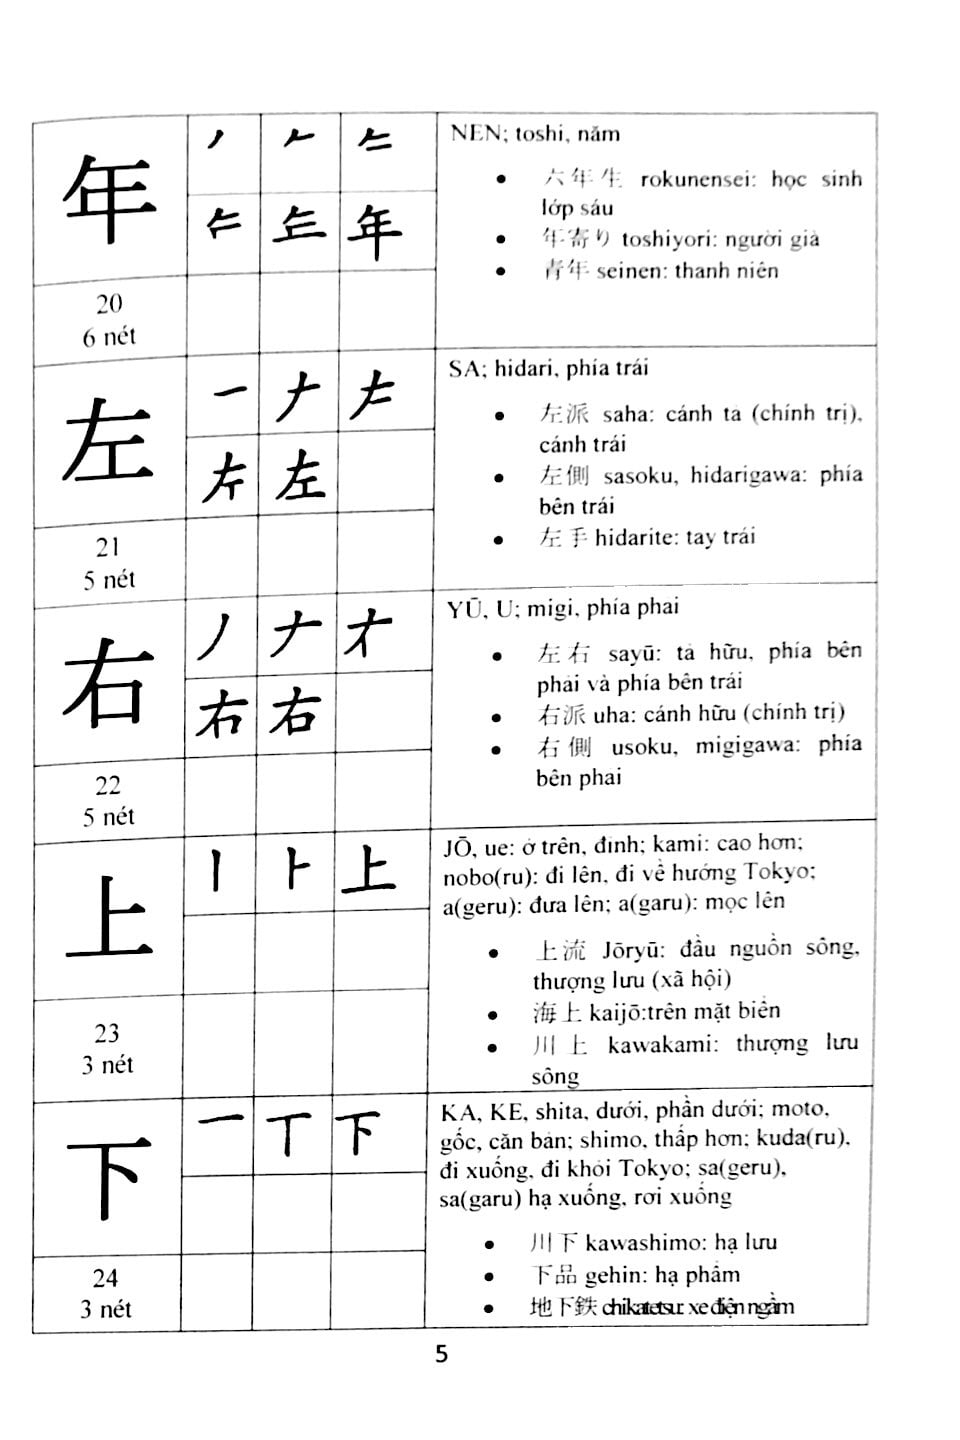 年
NEN; toshi, năm
• 六年生 rokunensei: học sinh
lớp sáu
• 年寄り toshiyori: người già
• 青年 seinen: thanh niên
20
6 nét
左
SA; hidari, phía trái
• 左派 saha: cánh tả (chính trị),
cánh trái
• 左側 sasoku, hidarigawa: phía
bên trái
• 左手 hidarite: tay trái
21
5 nét
右
YŪ, U; migi, phía phai
• 左右 sayū: tả hữu, phía bên
phải và phía bên trái
• 右派 uha: cánh hữu (chính trị)
• 右側 usoku, migigawa: phía
bên phai
22
5 nét
上
JŌ, ue: ở trên, đỉnh; kami: cao hơn;
nobo(ru): đi lên, đi về hướng Tokyo;
a(geru): đưa lên; a(garu): mọc lên
• 上流 Jōryū: đầu nguồn sông,
thượng lưu (xã hội)
• 海上 kaijō:trên mặt biển
• 川上 kawakami: thượng lưu
sông
23
3 nét
下
KA, KE, shita, dưới, phần dưới; moto,
gốc, căn bản; shimo, thấp hơn; kuda(ru),
đi xuống, đi khỏi Tokyo; sa(geru),
sa(garu) hạ xuống, rơi xuống
• 川下 kawashimo: hạ lưu
• 下品 gehin: hạ phẩm
• 地下鉄 chikatetsu: xe điện ngầm
24
3 nét
5